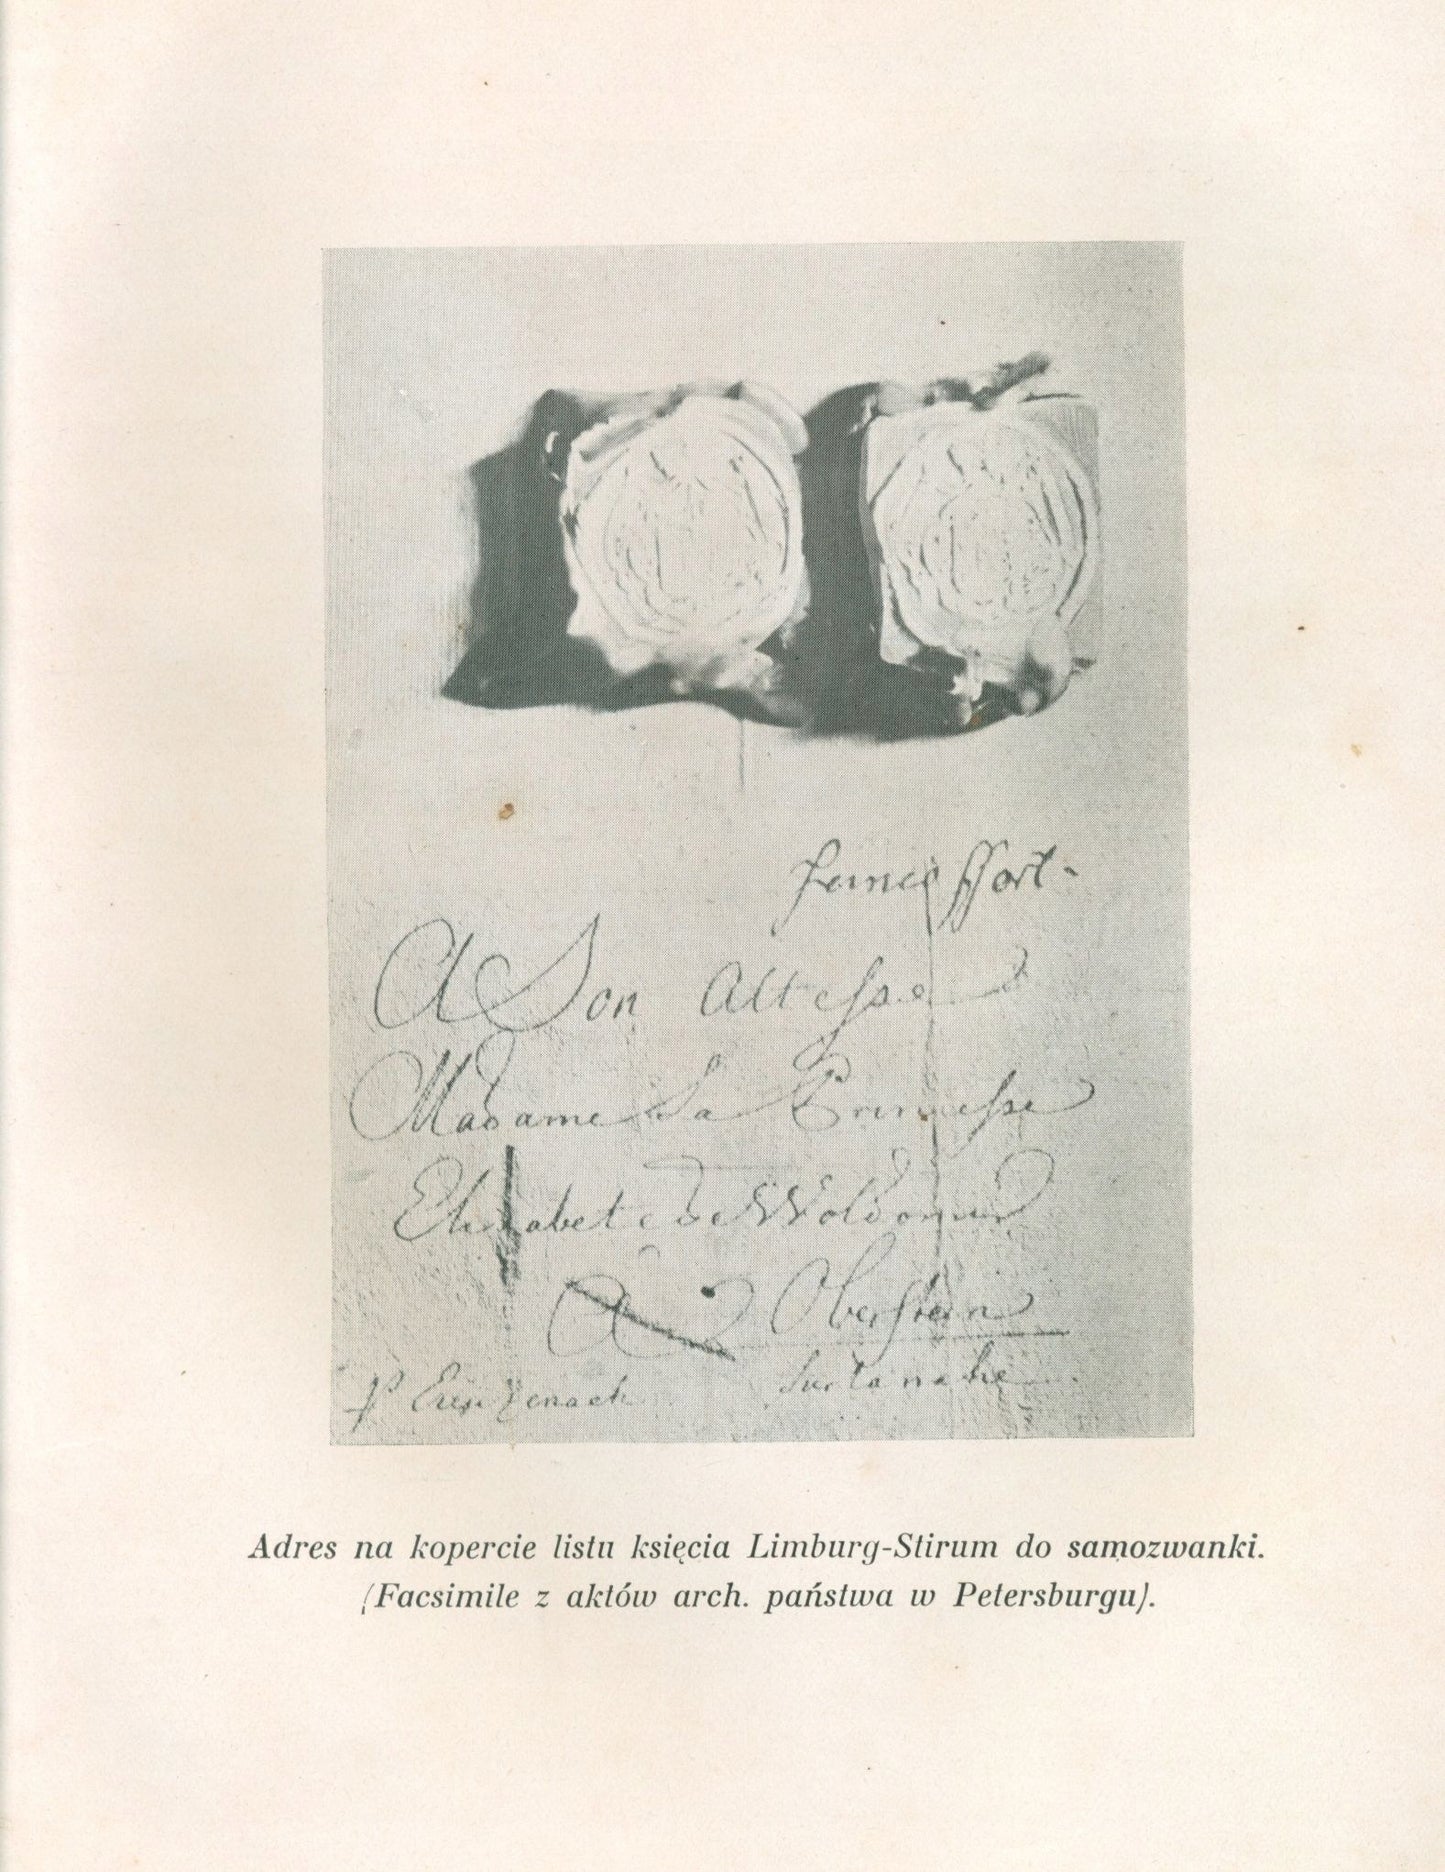 franc ffort-
A Son Altesse
Madame La Princesse
Elizabete de Woldomir
A Oberstein
p Creutzenach sur la nahe
Adres na kopercie listu księcia Limburg-Stirum do samozwanki.
(Facsimile z aktów arch. państwa w Petersburgu).